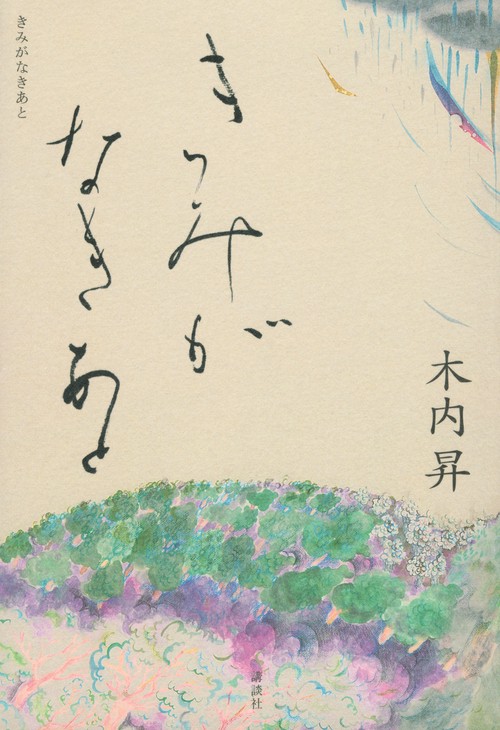 きみがなきあと
きみが
なきあと
木内昇
講談社